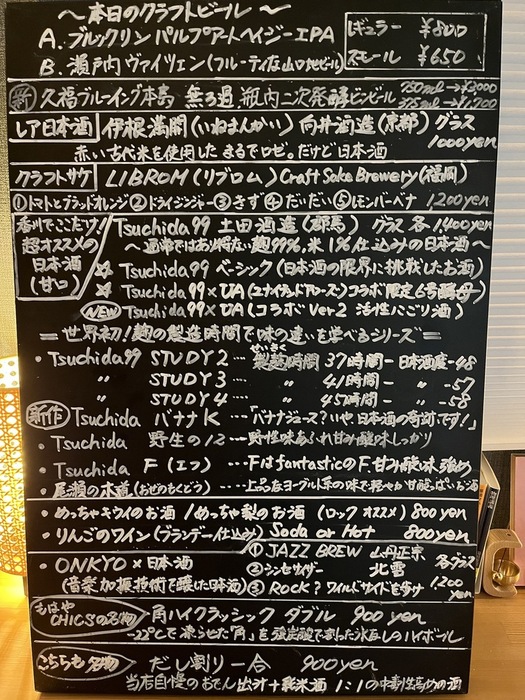 ～本日のクラフトビール～
A.ブルックリン パルプアートヘイジーIPA
レギュラー ¥800
B.瀬戸内ヴァイツェン(フルーティな山口地ビール)
スモール ¥650
新 久福ブルーイング本島 無ろ過 瓶内二次発酵ビンビール 750ml→¥3000
375ml→¥1,700
レア日本酒 伊根満開(いねまんかい) 向井酒造(京都) グラス
1000yen
赤い古代米を使用したまるでロゼ。だけど日本酒
クラフトサケ LIBROM(リブロム) Craft Sake Brewery(福岡)
①トマトとブラッドオレンジ②ドライジンジャー③きず④だいだい⑤レモンバーベナ 1200yen
香川でここだけ!
超オススメの
日本酒
(甘口)
Tsuchida99 土田酒造(群馬) グラス 各1400yen
～通常ではあり得ない麹99%、米1%仕込みの日本酒～
☆Tsuchida99 ベーシック(日本酒の限界に挑戦したお酒)
☆Tsuchida99×UA(ユナイテッドアローズ)コラボ限定6号酵母)
NEW Tsuchida99×UA(コラボVer2 活性にごり酒)
=世界初!麹の製造時間で味の違いを学べるシリーズ=
・Tsuchida99 STUDY2…製麹時間 37時間-日本酒度-48
〃 STUDY3 〃 41時間- 〃 -57
〃 STUDY4 〃 45時間- 〃 -58
新作 Tsuchida バナナK …「バナナジュース?いや、日本酒の奇跡です!」
・Tsuchida 野生の12…野性味あふれ甘み酸味しっかり
・Tsuchida F(エフ) …FはfantasticのF.甘み酸味強め
・尾瀬の本道(おぜのもくどう)…上品なヨーグルト系の味で軽やか甘酸っぱいお酒
・めっちゃキウイのお酒/めっちゃ梨のお酒(ロックオススメ) 800yen
・りんごのワイン(ブランデー仕込み) Soda or Hot 800yen
・ONKYO×日本酒
(音楽加振技術で醸した日本酒)
①JAZZ BREW 山丹正宗
②シンセサイザー 北雪
③ROCK?ワイルドサイドを歩け
各グラス
1200
yen
もはや
CHICSの名物
角ハイクラッシック ダブル 900yen
-22℃で凍らせた「角」を強炭酸で割った氷なしのハイボール
こちらも名物 だし割り一合 900yen
当店自慢のおでん出汁+純米酒 1:1の中毒性高めの酒